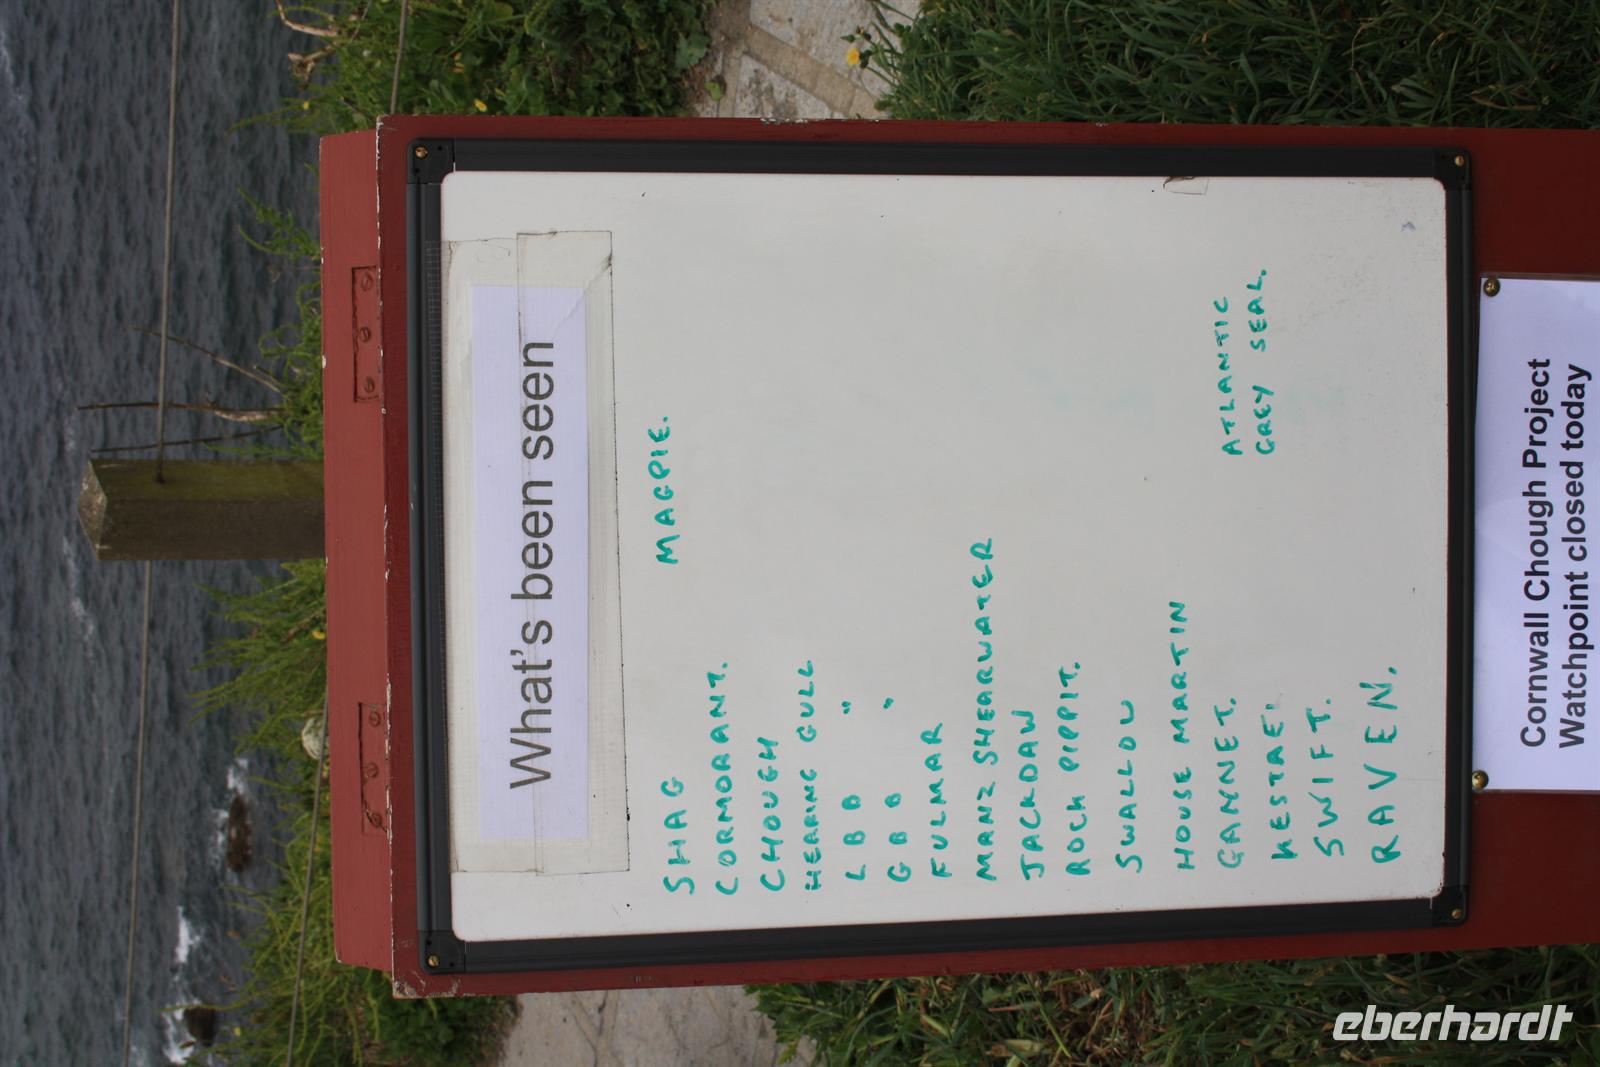 What's been seen
SHAG
MAGPIE.
CORMORANT.
CHOUGH
HERRING GULL
L B B "
G B B "
FULMAR
MANX SHEARWATER
JACKDAW
ROCK PIPPIT.
SWALLOW
HOUSE MARTIN
GANNET.
KESTREL
SWIFT.
RAVEN.
ATLANTIC
GREY SEAL.
Cornwall Chough Project
Watchpoint closed today
eberhardt